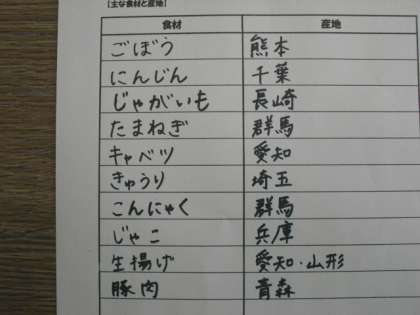 [主な食材と産地]
食材 産地
ごぼう 熊本
にんじん 千葉
じゃがいも 長崎
たまねぎ 群馬
キャベツ 愛知
きゅうり 埼玉
こんにゃく 群馬
じゃこ 兵庫
生揚げ 愛知・山形
豚肉 青森